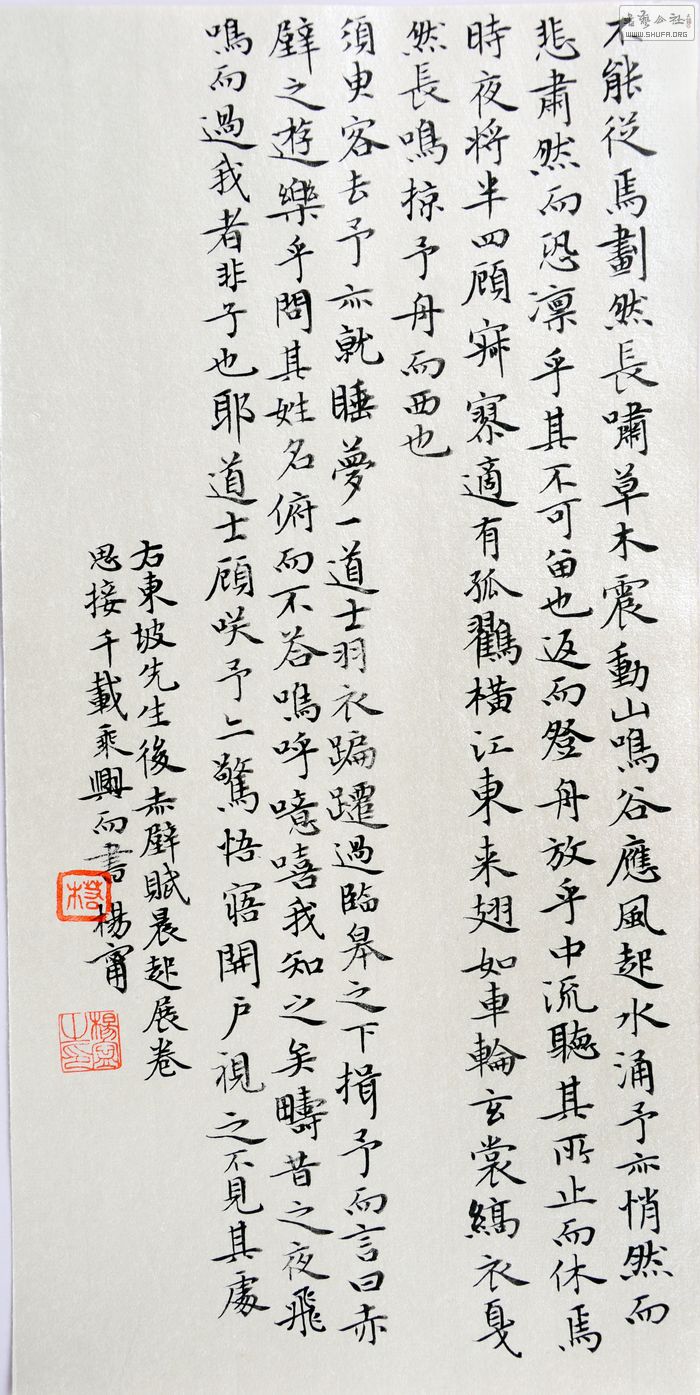 不能從焉劃然長嘯草木震動山鳴谷應風起水涌予亦悄然而
悲肅然而恐凛乎其不可留也返而登舟放乎中流聽其所止而休焉
時夜将半四顧寂寥適有孤鸛橫江東来翅如車輪玄裳縞衣戛
然長鳴掠予舟而西也
須臾客去予亦就睡夢一道士羽衣蹁躚過臨皋之下揖予而言曰赤
壁之遊樂乎問其姓名俯而不答嗚呼噫嘻我知之矣疇昔之夜飛
鳴而過我者非子也耶道士顧咲予亦驚悟寤開户視之不見其處
右東坡先生後赤壁賦晨起展卷
思接千載乘興而書楊甯
楊甯之印
WWW.SHUFA.ORG